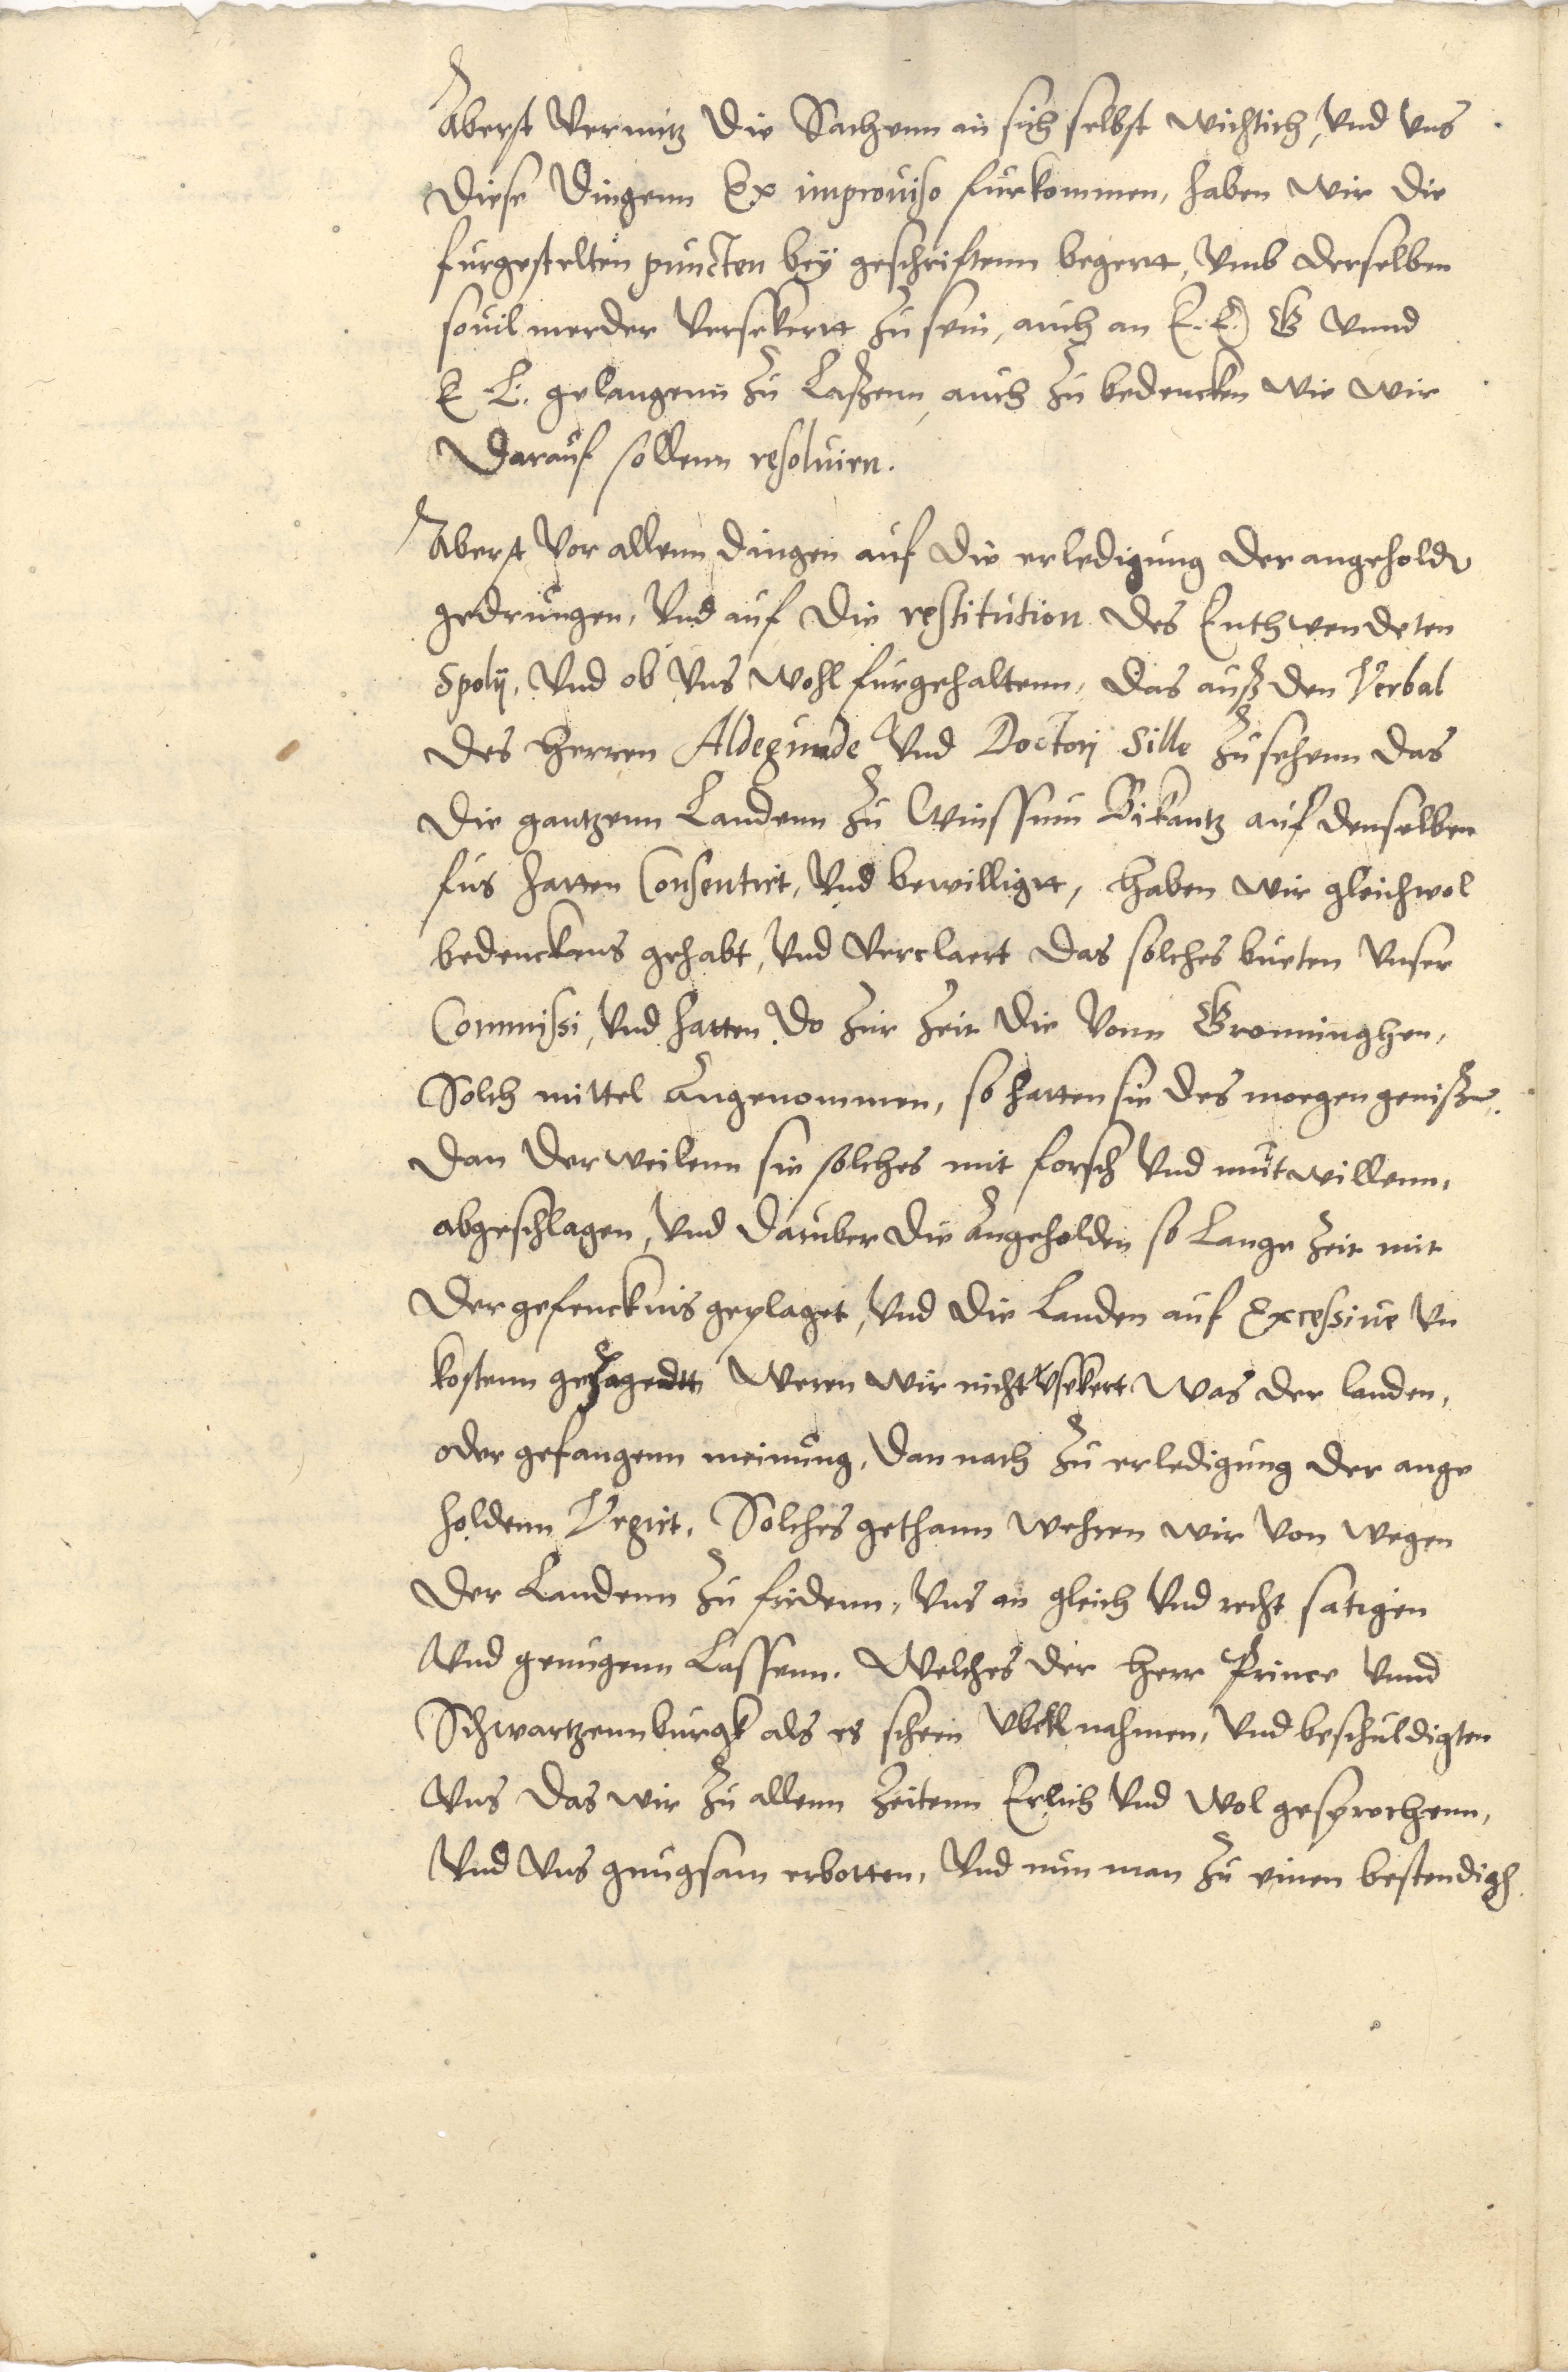 Aberst vermitz die Sachenn an sich selbst wichtich, vnd vns
diese dingenn Ex improuiso furkommen, haben wir die
furgestelten puncten beÿ geschriftenn begertt, vmb derselben
souil merder versekertt zu sein, auch an E. E. G vnnd
E L. gelangenn zu Laßenn, auch zu bedencken wie wir
darauf sollenn resoluiren.
Aberst vor allenn dingen auf die erledigung der angehold
gedrungen, vnd auf die restitution des Enthwendeten
Spolij, vnd ob vns wohl furgehaltenn, das auß den Verbal
des herren Aldegunde vnd Doctorj Sille zu sehenn das
die gantzenn Landenn zu Winssum Bikantz auf denselben
fus hatten Consentirt, vnd bewilligtt, haben wir gleichwol
bedenckens gehabt, vnd verclaert das solches bueten vnser
Commissi, vnd hatten do zur zeit die vonn Gronninghen,
Solch mittel angenommen, so hatten sie des moegen genißen.
dan der weilenn sie solches mit forsch vnd mutwillenn,
abgeschlagen, vnd daruber die angeholden so Lange zeit mit
der gefencknis geplaget, vnd die Landen auf Excessiue vn
kostenn gejagedtt weren wir nicht vsekert was der landen,
oder gefangenn meinung, dan nach zu erledigung der ange
holdenn Vrgirt, Solches gethann wehren wir von wegen
der Landenn zu fridenn, vns an gleich vnd recht satigen
vnd genugenn Lassenn. Welches der herr Prince vnnd
Schwartzennburgk als es schein vbell nahmen, vnd beschuldigten
vns das wir zu allenn zeitenn Erlich vnd wol gesprochenn,
vnd vns gnugsam erbotten, vnd nun man zu einen bestendigh